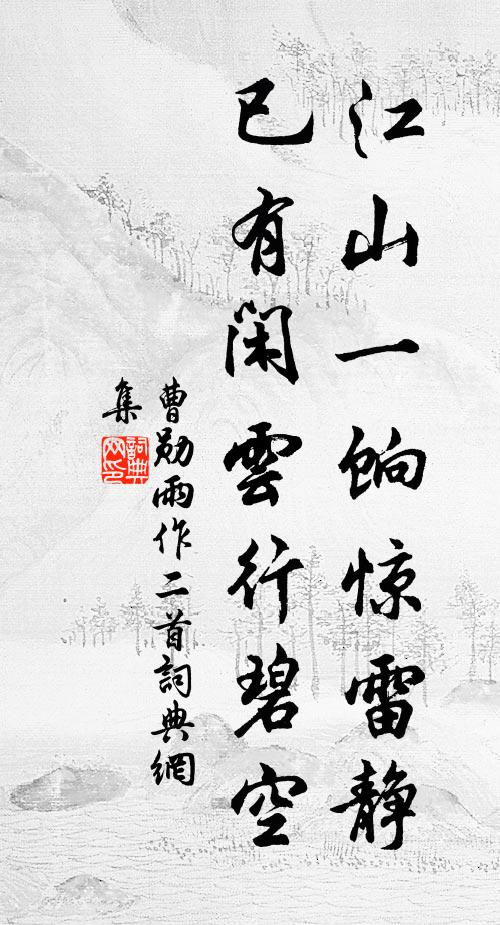 江山一饷惊雷静
已有闲雲行碧空
曹勋雨作二首詞典網
集
詞典网印